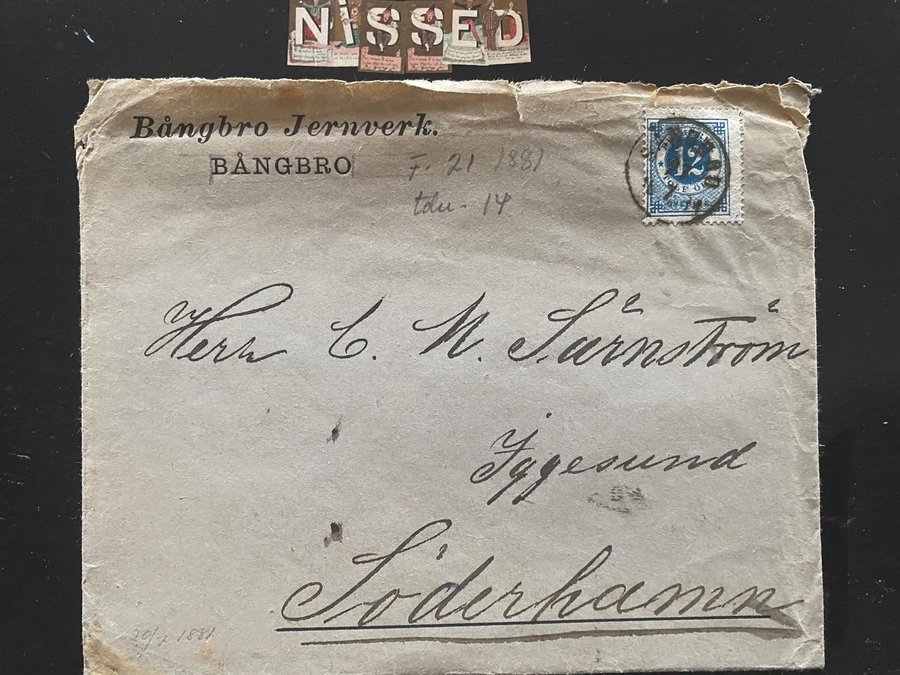 NiSSED
Bångbro Jernverk.
BÅNGBRO
F. 21 1881
tdu - 14
12
Herr C. M. Särnström
Iggesund
Söderhamn
1881